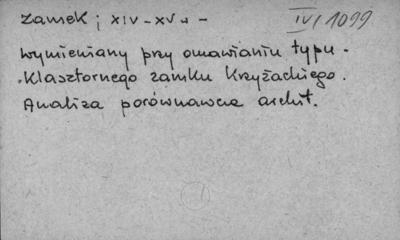 zamek ; XIV - XV w - IV/1099
wymieniany przy omawianiu typu -
klasztornego zamku krzyżackiego.
Analiza porównawcza archit.